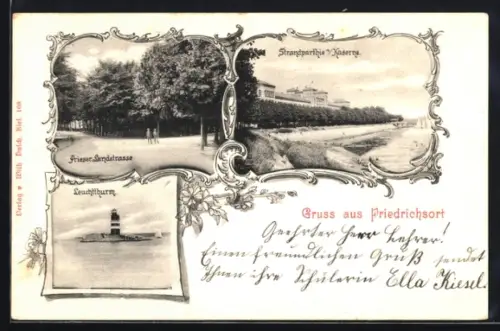 Strandparthie m/Kaserne.
Prieser Landstrasse
Leuchtthurm.
Gruss aus Friedrichsort
Geehrter Herr Lehrer!
Einen freundlichen Gruß sendet
Ihnen ihre Schülerin Ella Kiesel.
Verlag v Wilh Dulch. Kiel 108